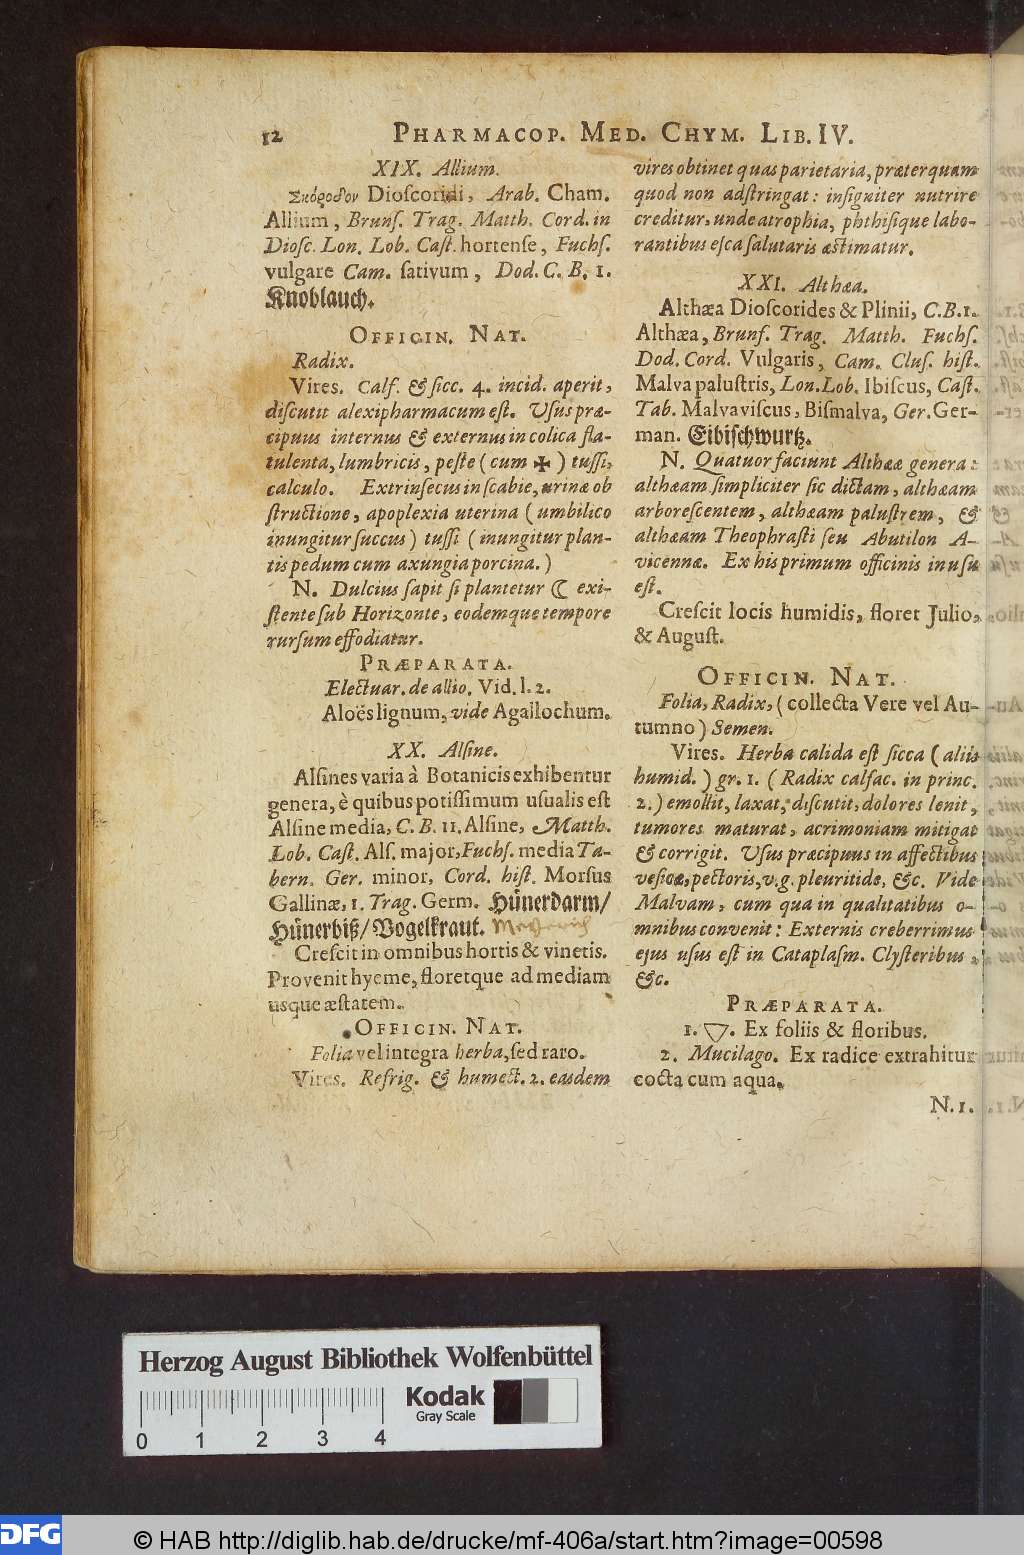 12 PHARMACOP. MED. CHYM. LIB. IV.
XIX. Allium.
Σκόροδον Dioſcoridi, Arab. Cham.
Allium, Brunſ. Trag. Matth. Cord. in
Dioſc. Lon. Lob. Caſt. hortenſe, Fuchſ.
vulgare Cam. ſativum, Dod. C. B. 1.
Knoblauch.
OFFICIN. NAT.
Radix.
Vires. Calf. & ſicc. 4. incid. aperit,
diſcutit alexipharmacum eſt. Uſus præ-
cipuus internus & externus in colica fla-
tulenta, lumbricis, peſte (cum ✠) tuſſi,
calculo. Extrinſecus in ſcabie, urinæ ob
ſtructione, apoplexia uterina (umbilico
inungitur ſuccus) tuſſi (inungitur plan-
tis pedum cum axungia porcina.)
N. Dulcius ſapit ſi plantetur ☾ exi-
ſtente ſub Horizonte, eodemque tempore
rurſum effodiatur.
PRÆPARATA.
Electuar. de allio. Vid. l. 2.
Aloës lignum, vide Agallochum.
XX. Alſine.
Alſines varia à Botanicis exhibentur
genera, è quibus potiſſimum uſualis eſt
Alſine media, C. B. 11. Alſine, Matth.
Lob. Caſt. Alſ. major, Fuchſ. media Ta-
bern. Ger. minor, Cord. hiſt. Morſus
Gallinæ, 1. Trag. Germ. Hünerdarm/
Hünerbiß/ Vogelkraut.
Creſcit in omnibus hortis & vinetis.
Provenit hyeme, floretque ad mediam
usque æſtatem.
OFFICIN. NAT.
Folia vel integra herba, ſed raro.
Vires. Refrig. & humect. 2. easdem
vires obtinet quas parietaria, præterquam
quod non adſtringat: inſigniter nutrire
creditur, unde atrophia, phthiſique labo-
rantibus eſca ſalutaris æſtimatur.
XXI. Althæa.
Althæa Dioſcorides & Plinii, C. B. 1.
Althæa, Brunſ. Trag. Matth. Fuchſ.
Dod. Cord. Vulgaris, Cam. Cluſ. hiſt.
Malva paluſtris, Lon. Lob. Ibiſcus, Caſt.
Tab. Malvaviſcus, Biſmalva, Ger. Ger-
man. Eibiſchwurtz.
N. Quatuor faciunt Althææ genera:
althæam ſimpliciter ſic dictam, althæam
arboreſcentem, althæam paluſtrem, &
althæam Theophraſti ſeu Abutilon A-
vicennæ. Ex his primum officinis in uſu
eſt.
Creſcit locis humidis, floret Julio,
& Auguſt.
OFFICIN. NAT.
Folia, Radix, (collecta Vere vel Au-
tumno) Semen.
Vires. Herba calida eſt ſicca (aliis
humid.) gr. 1. (Radix calfac. in princ.
2.) emollit, laxat, diſcutit, dolores lenit,
tumores maturat, acrimoniam mitigat
& corrigit. Uſus præcipuus in affectibus
veſicæ, pectoris, v. g. pleuritide, &c. Vide
Malvam, cum qua in qualitatibus o-
mnibus convenit: Externis creberrimus
ejus uſus eſt in Cataplaſm. Clyſteribus,
&c.
PRÆPARATA.
1. ▽. Ex foliis & floribus.
2. Mucilago. Ex radice extrahitur
cocta cum aqua.
N. 1.
Herzog August Bibliothek Wolfenbüttel
Kodak
Gray Scale
0 1 2 3 4
DFG
© HAB http://diglib.hab.de/drucke/mf-406a/start.htm?image=00598